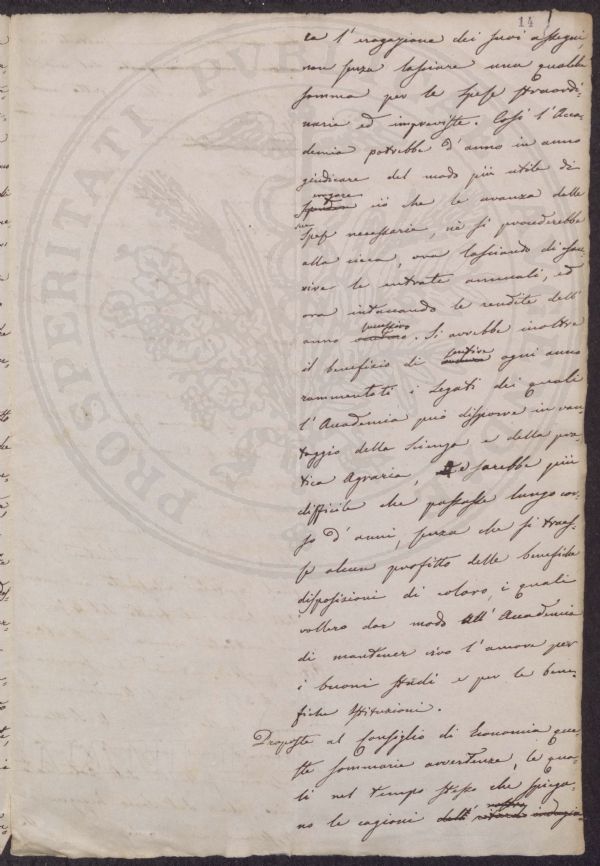 14
ra l'erogazione dei suoi assegni,
non senza lasciare una qualche
somma per le spese straordi-
narie ed impreviste. Così l'Acca-
demia potrebbe d'anno in anno
giudicare del modo più utile di
erogare
ciò che le avanza dalle
sue
spese necessarie, nè si procederebbe
alla cieca, ora lasciando di
le entrate annuali, ed
ora intaccando le rendite dell'
anno venturo. Si avrebbe inoltre
il beneficio di sentire ogni anno
rammentati i Legati dei quali
l'Accademia può disporre in van-
taggio della Scienza e della pra-
tica Agraria, e sarebbe più
difficile che passasse lungo cor-
so d'anni, senza che si traes-
se alcun profitto delle benefiche
disposizioni di coloro, i quali
vollero dar modo all'Accademia
di mantener vivo l'amore per
i buoni studi e per le bene-
fiche istituzioni.
Proposte al Consiglio di Economia que-
ste sommarie avvertenze, le qua-
li nel tempo stesso che spiega-
no le cagioni dell' nostro ritardo indugio
PROSPERITATI PUBLICAE